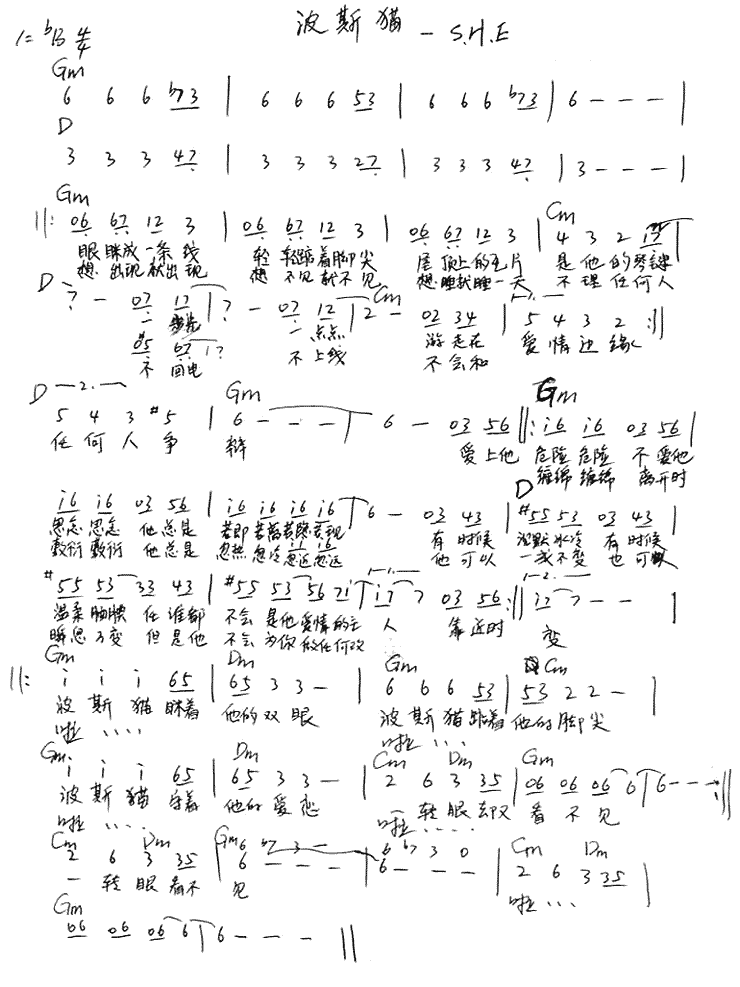 波斯猫 — S.H.E
1=ᵇB 4/4
Gm
6 6 6 ᵇ73 | 6 6 6 53 | 6 6 6 ᵇ73 | 6 - - - |
D
3 3 3 47 | 3 3 3 27 | 3 3 3 47 | 3 - - - |
Gm Cm
||: 06 67 12 3 | 06 67 12 3 | 06 67 12 3 | 4 3 2 17 |
眼眯成一条线 轻轻踮着脚尖 屋顶上的瓦片 是他的琴键
想出现就出现 想不见就不见 想睡就睡一天 不理任何人
D Cm 1.
7 - 07 17 | 7 - 07 12 | 2 - 02 34 | 5 4 3 2 :||
一 一点点 游走在 爱情边缘
#05 67 | 7
不回电 不上线 不会和
D 2. Gm Gm
5 4 3 #5 | 6 - - - | 6 - 03 56 ||: i6 i6 03 56 |
任何人争 辩 爱上他 危险危险 不爱他
缠绵缠绵 离开时
D
i6 i6 03 56 | i6 i6 i6 i6 | 6 - 03 43 | #55 53 03 43 |
思念思念 他总是 若即若离若隐若现 有时候 沉默冰冷 有时候
敷衍敷衍 他总是 忽热忽冷忽近忽远 他可以 一成不变 也可以
1. 2.
#55 53 33 43 | #55 53 56 71 | i7 7 03 56 :|| i7 7 - - |
温柔腼腆 任谁都 不会是他爱情的主 人 靠近时 变
瞬息万变 但是他 不会为你做任何改
Gm Dm Gm Cm
||: i i i 65 | 65 3 3 - | 6 6 6 53 | 53 2 2 - |
波斯猫眯着 他的双眼 波斯猫踮着 他的脚尖
啦 .... 啦 ....
Gm Dm Cm Dm Gm
i i i 65 | 65 3 3 - | 2 6 3 35 | 06 06 06 6 | 6 - - - :||
波斯猫守着 他的爱恋 一转眼却又 看不见
啦 .... 啦 ....
Cm Dm Gm Cm Dm
6 ᵇ7 3 - 6 ᵇ7 3 0
2 6 3 35 | 6 - - - | 6 - - - | 2 6 3 35 |
一转眼看不 见 啦 ...
Gm
06 06 06 6 | 6 - - - ||